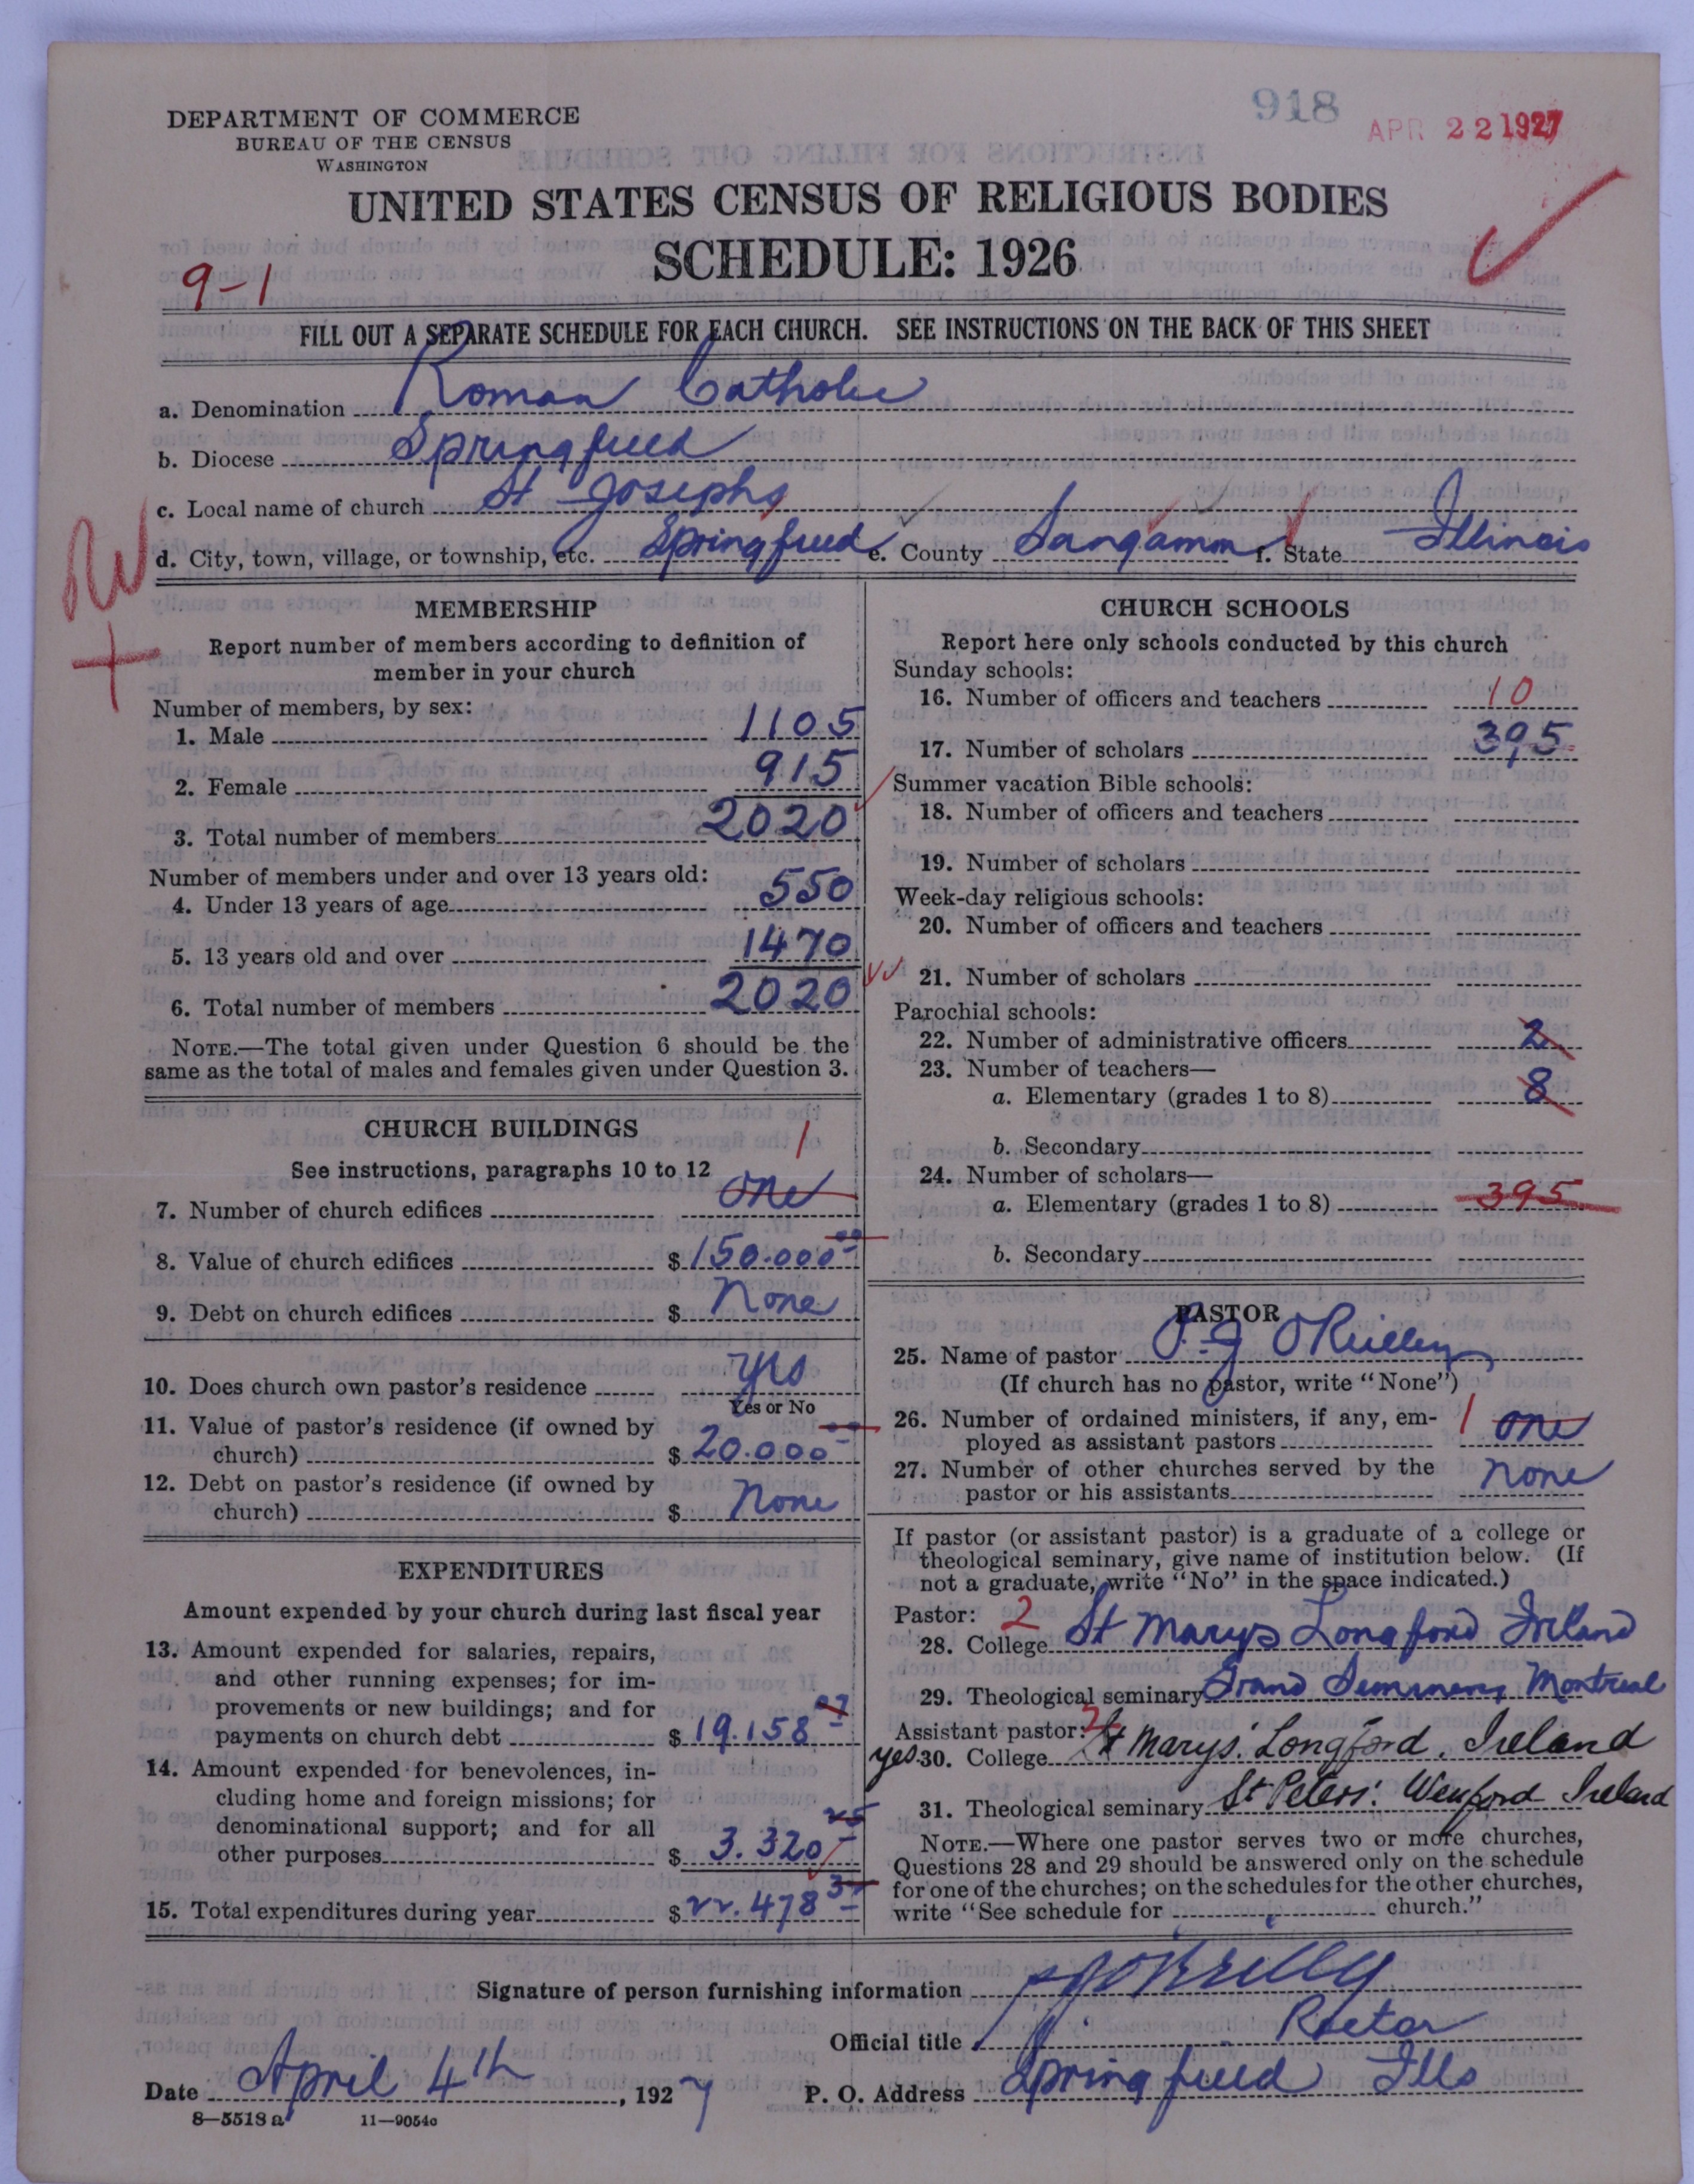 918
APR 22 1927
DEPARTMENT OF COMMERCE
BUREAU OF THE CENSUS
WASHINGTON
UNITED STATES CENSUS OF RELIGIOUS BODIES
SCHEDULE: 1926
9-1
FILL OUT A SEPARATE SCHEDULE FOR EACH CHURCH. SEE INSTRUCTIONS ON THE BACK OF THIS SHEET
a. Denomination Roman Catholic
b. Diocese Springfield
c. Local name of church St Josephs
d. City, town, village, or township, etc. Springfield e. County Sangamon f. State Illinois
MEMBERSHIP
Report number of members according to definition of
member in your church
Number of members, by sex:
1. Male 1105
2. Female 915
3. Total number of members 2020
Number of members under and over 13 years old:
4. Under 13 years of age 550
5. 13 years old and over 1470
6. Total number of members 2020
NOTE.—The total given under Question 6 should be the
same as the total of males and females given under Question 3.
CHURCH BUILDINGS
See instructions, paragraphs 10 to 12
1
7. Number of church edifices one
8. Value of church edifices $ 150.000 00
9. Debt on church edifices $ None
10. Does church own pastor's residence yes
Yes or No
11. Value of pastor's residence (if owned by
church) $ 20.000 00
12. Debt on pastor's residence (if owned by
church) $ None
EXPENDITURES
Amount expended by your church during last fiscal year
13. Amount expended for salaries, repairs,
and other running expenses; for im-
provements or new buildings; and for
payments on church debt $ 19.158
14. Amount expended for benevolences, in-
cluding home and foreign missions; for
denominational support; and for all
other purposes $ 3.320 25
15. Total expenditures during year $ 22.478
CHURCH SCHOOLS
Report here only schools conducted by this church
Sunday schools:
16. Number of officers and teachers 10
17. Number of scholars 395
Summer vacation Bible schools:
18. Number of officers and teachers
19. Number of scholars
Week-day religious schools:
20. Number of officers and teachers
21. Number of scholars
Parochial schools:
22. Number of administrative officers 2
23. Number of teachers—
a. Elementary (grades 1 to 8) 8
b. Secondary
24. Number of scholars—
a. Elementary (grades 1 to 8) 395
b. Secondary
PASTOR
25. Name of pastor P. J O'Reilley
(If church has no pastor, write "None")
26. Number of ordained ministers, if any, em-
ployed as assistant pastors 1 one
27. Number of other churches served by the
pastor or his assistants none
If pastor (or assistant pastor) is a graduate of a college or
theological seminary, give name of institution below. (If
not a graduate, write "No" in the space indicated.)
Pastor: 2
28. College St Marys Longford Ireland
29. Theological seminary Grand Seminary Montreal
Assistant pastor: 2
yes 30. College St Marys. Longford. Ireland
31. Theological seminary St Peters. Wexford Ireland
NOTE.—Where one pastor serves two or more churches,
Questions 28 and 29 should be answered only on the schedule
for one of the churches; on the schedules for the other churches,
write "See schedule for church."
Signature of person furnishing information PJO'Reilly
Official title Rector
Date April 4th, 1927 P. O. Address Springfield Ills
8—5518 a 11—9054c